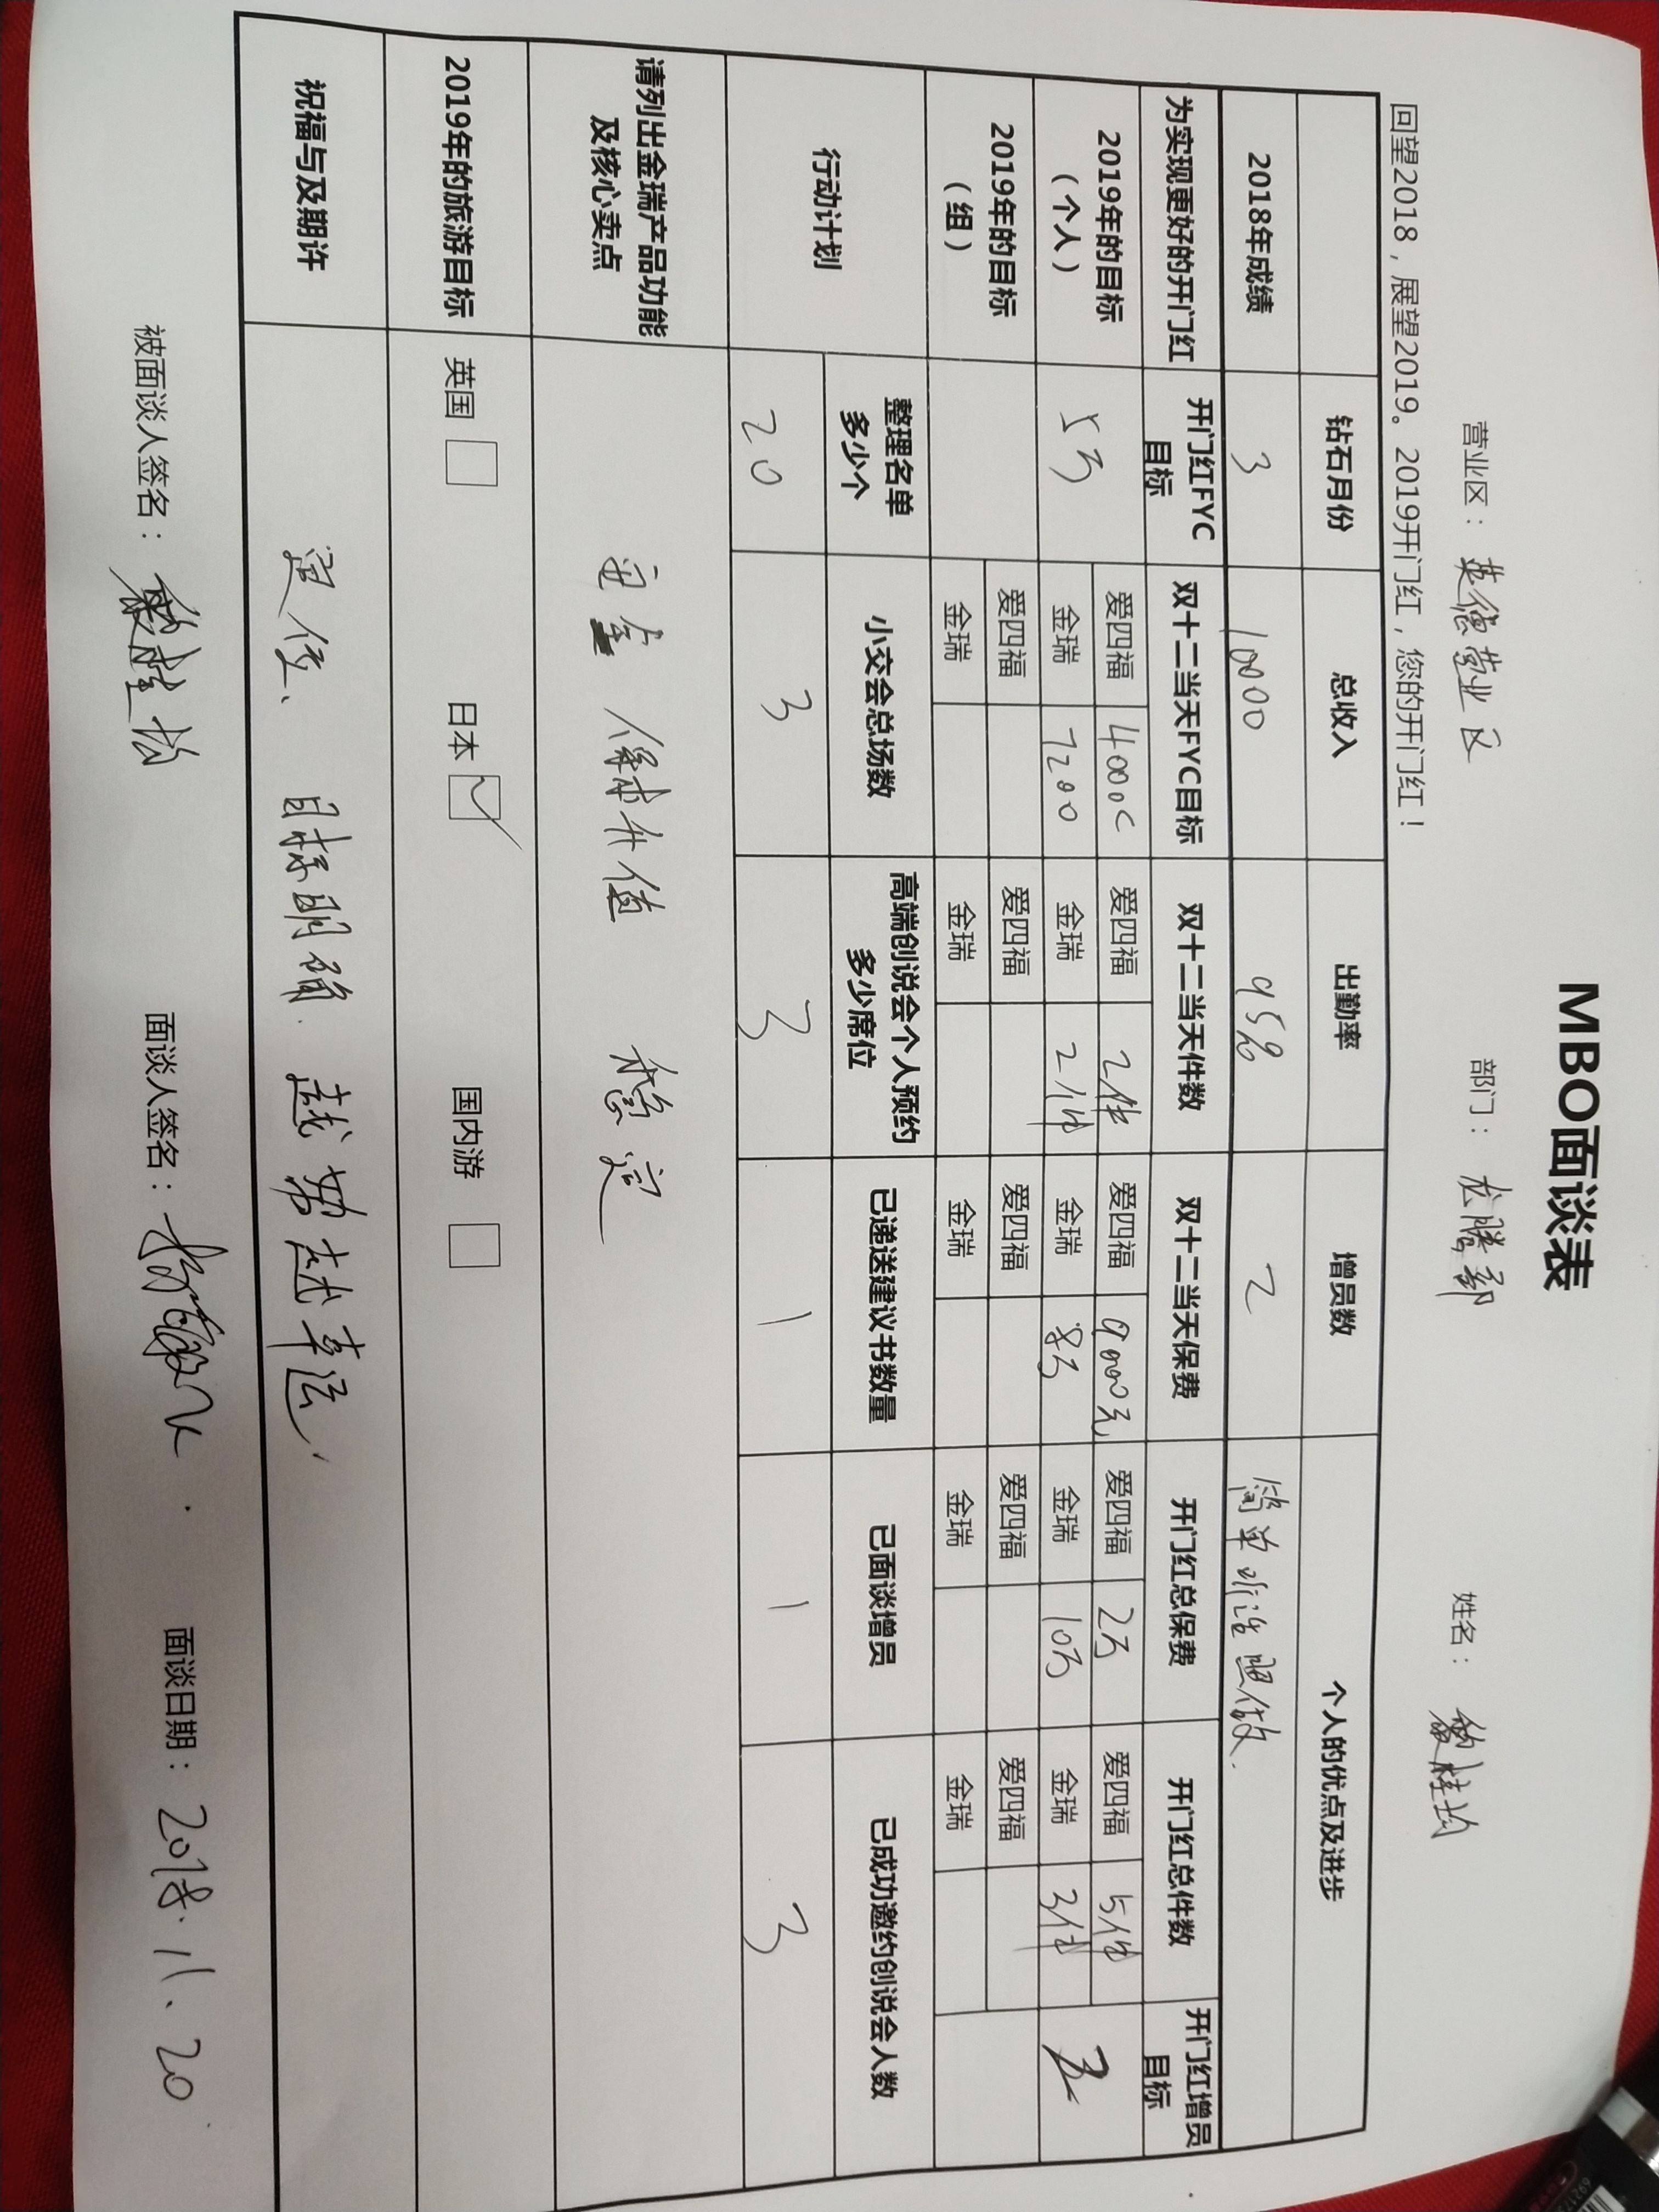 MBO面谈表
营业区：英德营业区 部门：松腾部 姓名：黎桂均
回望2018，展望2019。2019开门红，您的开门红！
钻石月份 总收入 出勤率 增员数 个人的优点及进步
2018年成绩 3 10000 95% 2 简单听话照做.
为实现更好的开门红 开门红FYC目标 双十二当天FYC目标 双十二当天件数 双十二当天保费 开门红总保费 开门红总件数 开门红增员目标
2019年的目标（个人） 5万 爱四福 4000 爱四福 2件 爱四福 9000元 爱四福 2万 爱四福 5件
金瑞 7200 金瑞 2件 金瑞 8万 金瑞 10万 金瑞 3件
2019年的目标（组） 爱四福 爱四福 爱四福 爱四福 爱四福
金瑞 金瑞 金瑞 金瑞 金瑞
行动计划 整理名单多少个 小交会总场数 高端创说会个人预约多少席位 已递送建议书数量 已面谈增员 已成功邀约创说会人数
20 3 3 1 1 3
请列出金瑞产品功能及核心卖点 安全 保本升值 稳定
2019年的旅游目标 英国 □ 日本 ☑ 国内游 □
祝福与及期许 定位、目标明确. 越努力越幸运.
被面谈人签名：黎桂均 面谈人签名： 面谈日期：2018.11.20